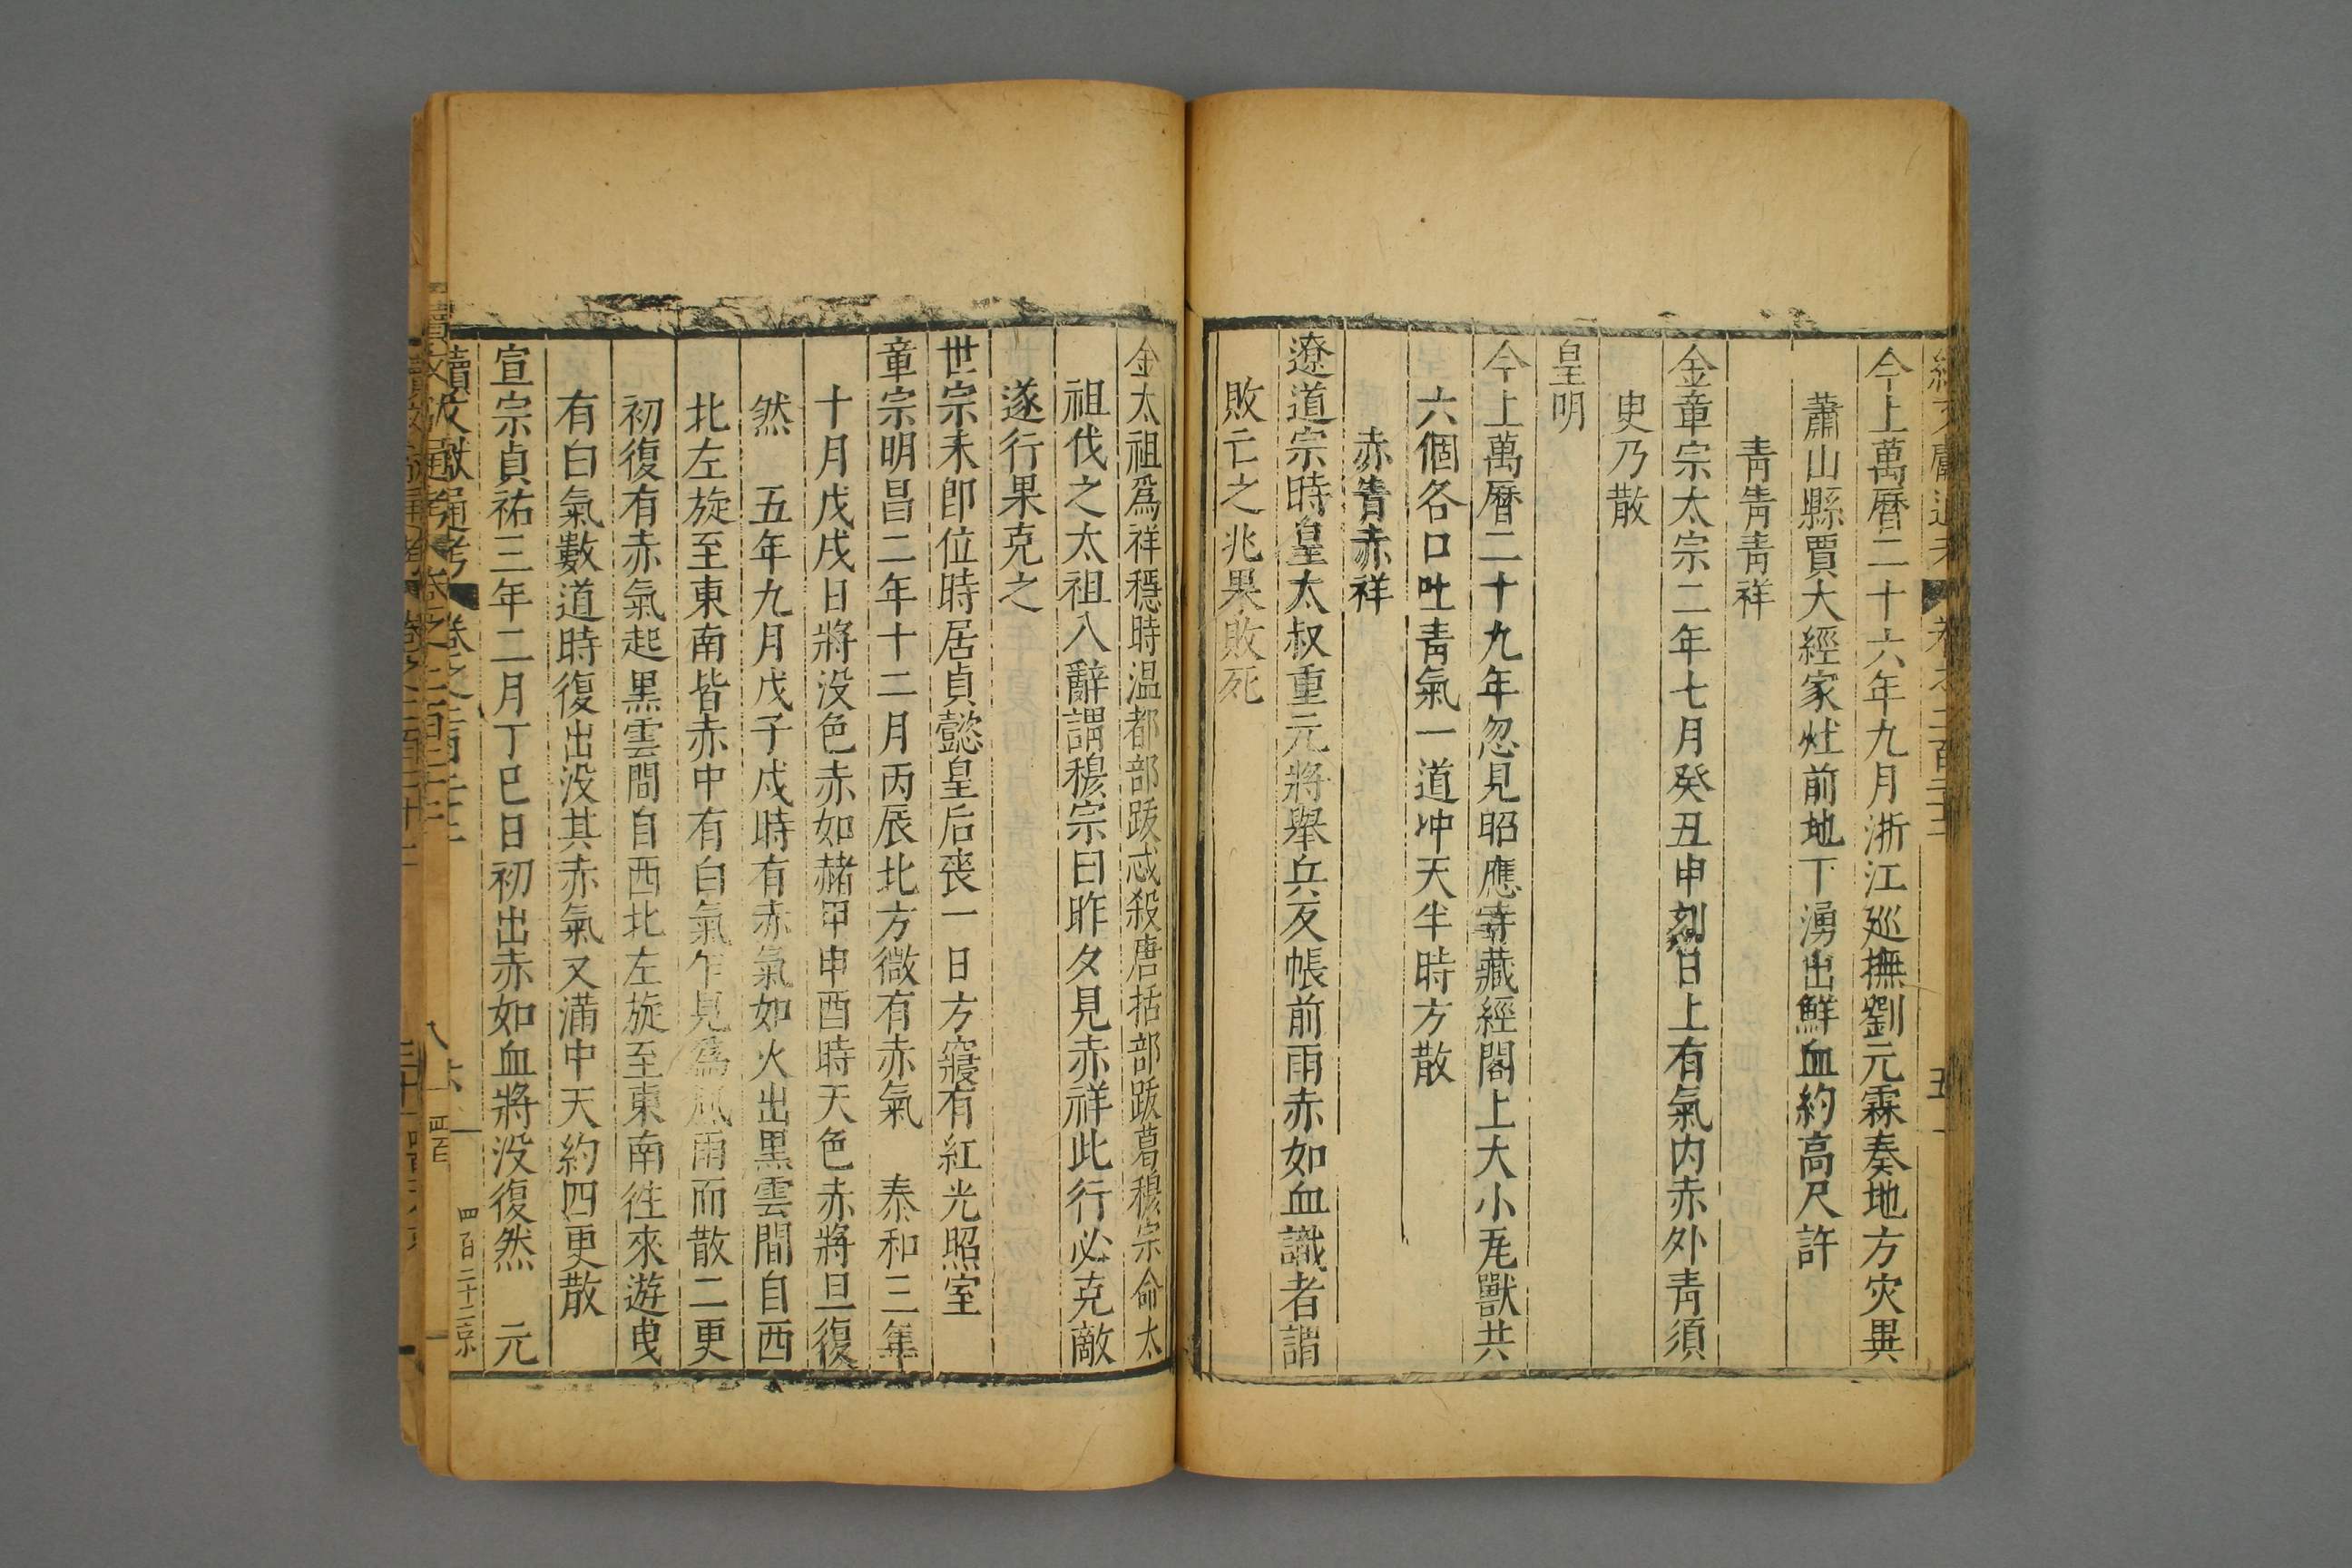 今上萬曆二十六年九月浙江廵撫劉元霖奏地方灾異
蕭山縣賈大經家灶前地下湧出鮮血約高尺許
青眚青祥
金章宗太宗二年七月癸丑申刻日上有氣内赤外青須
史乃散
皇明
今上萬曆二十九年忽見昭應寺藏經閣上大小瓦獸共
六個各口吐青氣一道冲天半時方散
赤眚赤祥
遼道宗時皇太叔重元將舉兵友帳前雨赤如血識者謂
敗亡之兆果敗死
金太祖爲祥穩時温都部跋忒殺唐括部跋葛穆宗命太
祖伐之太祖入辭謂穆宗曰昨夕見赤祥此行必克敵
遂行果克之
世宗未卽位時居貞懿皇后丧一日方寢有紅光照室
章宗明昌二年十二月丙辰北方微有赤氣 泰和三年
十月戊戌日將没色赤如赭甲申酉時天色赤將旦復
然 五年九月戊子戍時有赤氣如火出黒雲間自西
北左旋至東南皆赤中有白氣乍見爲風雨而散二更
初復有赤氣起黒雲間自西北左旋至東南徃來遊曵
有白氣數道時復出没其赤氣又滿中天約四更散
宣宗貞祐三年二月丁巳日初出赤如血將没復然 元
續文獻通考
四百二十二